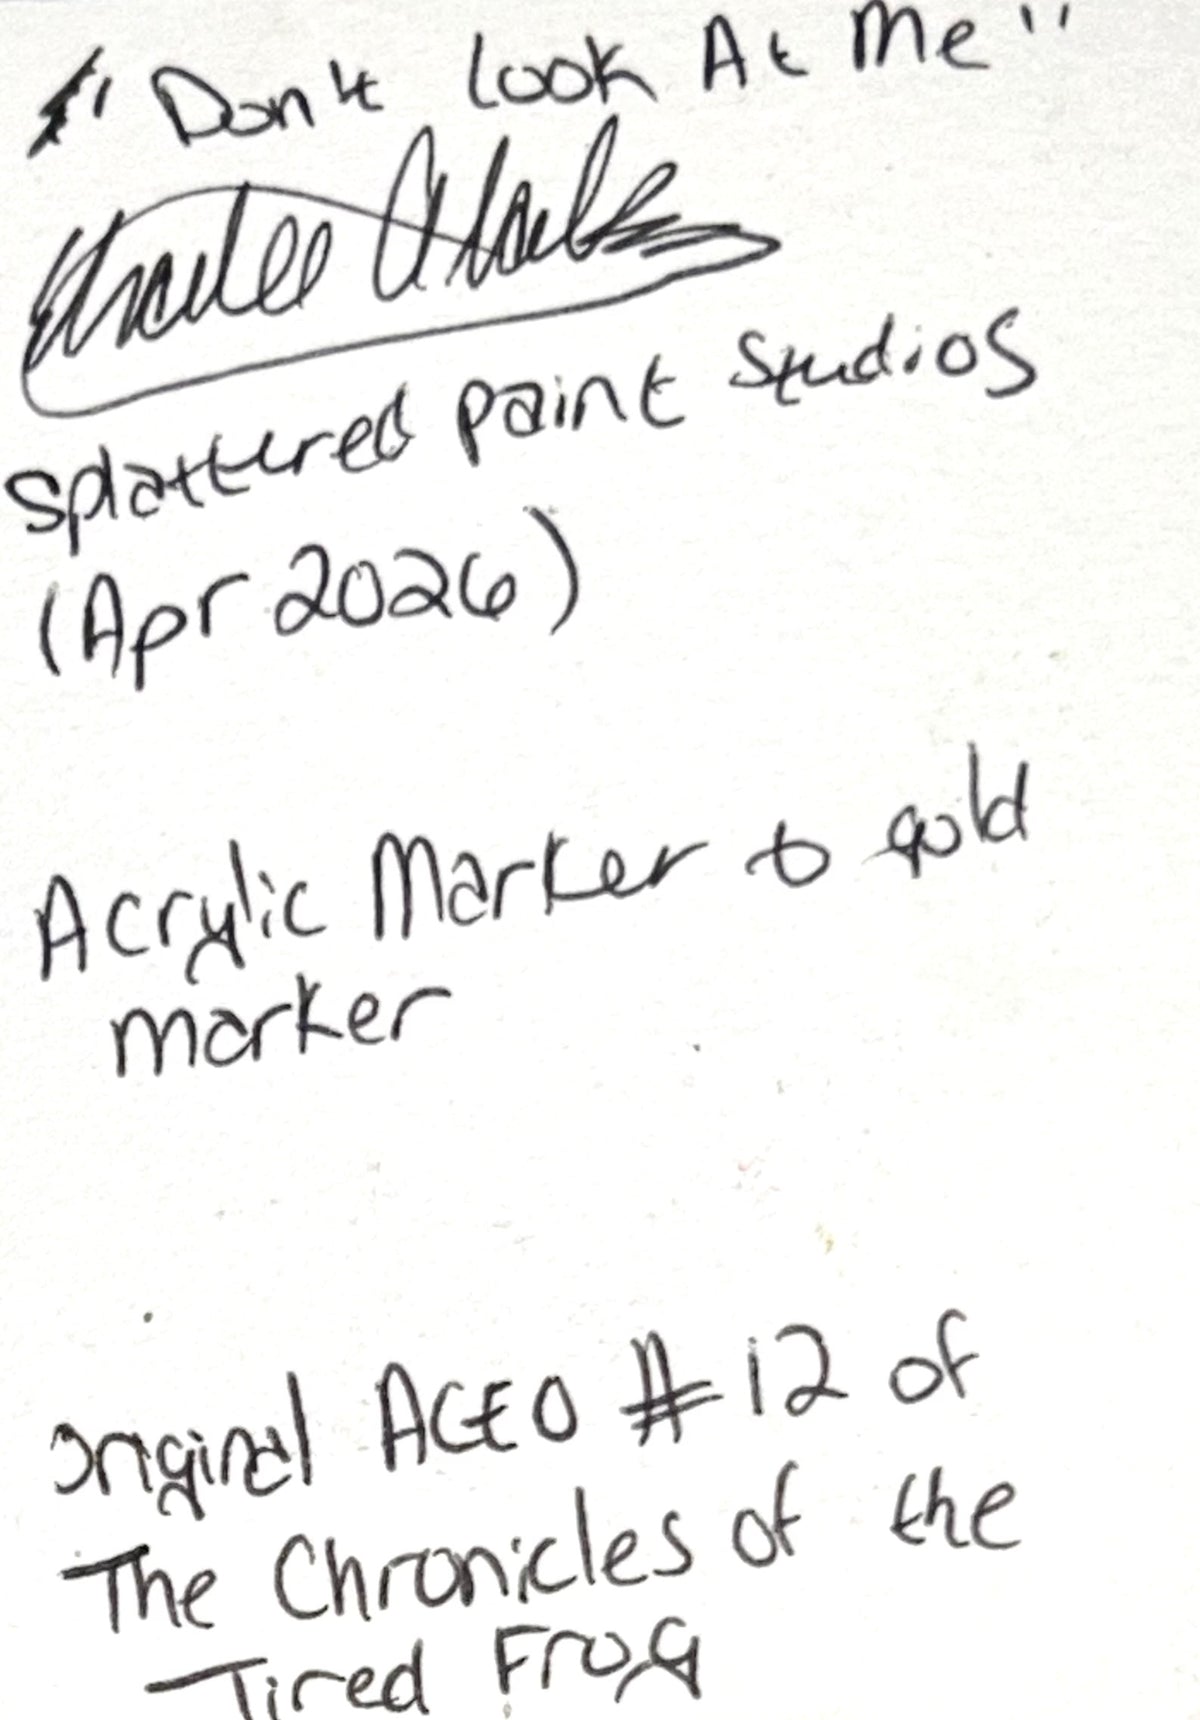 "Don't Look At Me"
Splattered Paint Studios
(Apr 2026)
Acrylic Marker to gold
marker
Original ACEO #12 of
The Chronicles of the
Tired Frog